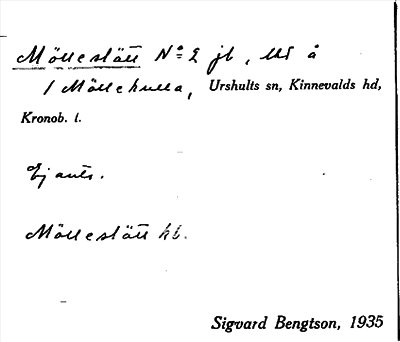 Möllestätt Nº 2 jb, litt å
/ Möllehulla, Urshults sn, Kinnevalds hd,
Kronob. l.
Ej ant.
Möllestätt kb.
Sigvard Bengtson, 1935